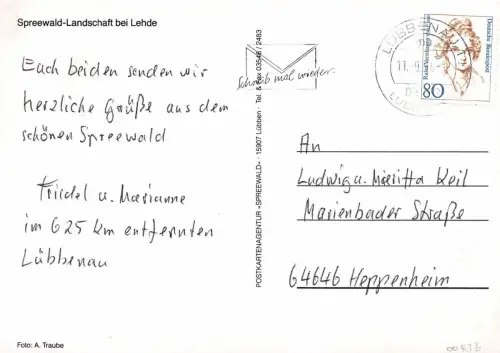 Spreewald-Landschaft bei Lehde
Euch beiden senden wir
herzliche Grüße aus dem
schönen Spreewald
Friedel u. Marianne
im 625 km entfernten
Lübbenau
Foto: A. Traube
POSTKARTENAGENTUR »SPREEWALD« · 15907 Lübben · Tel. & Fax 03546 / 2483
Schreib mal wieder.
LÜBBENAU
Deutsche Bundespost
80
An
Ludwig u. Maritta Keil
Marienbader Straße
64646 Heppenheim